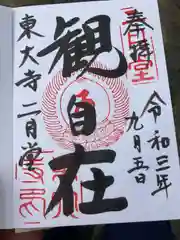 奉拝
令和三年九月五日
観自在
東大寺二月堂